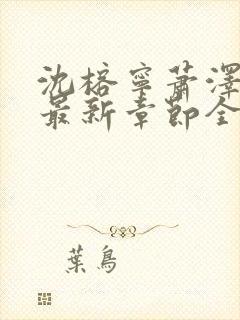 沈榕寧蕭澤
最新章節全
葉鳥